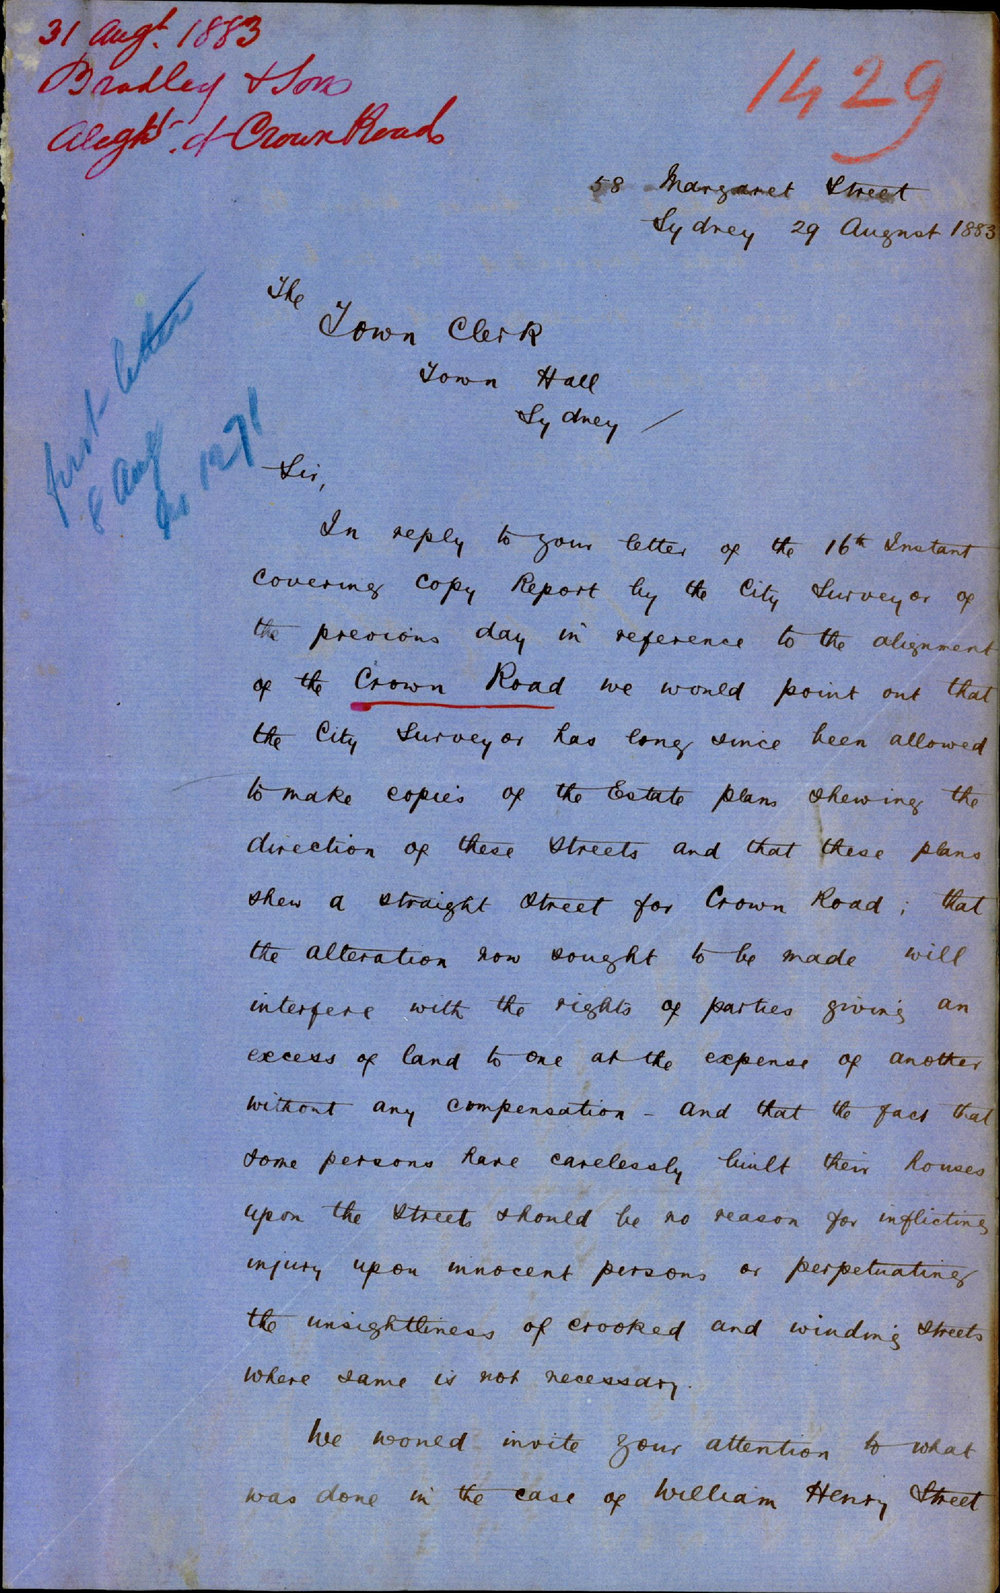 31 Augt. 1883
Bradley & Sons
Aleght. of Crown Road
1429
58 Margaret Street
Sydney 29 August 1883
The
Town Clerk
Town Hall
Sydney
first letter
8 Aug
1271
Sir,
In reply to your letter of the 16th Instant
covering copy Report by the City Surveyor of
the previous day in reference to the alignment
of the Crown Road we would point out that
the City Surveyor has long since been allowed
to make copies of the Estate plans shewing the
direction of these Streets and that these plans
shew a straight Street for Crown Road; that
the alteration now sought to be made will
interfere with the rights of parties giving an
excess of land to one at the expense of another
without any compensation - and that the fact that
some persons have carelessly built their houses
upon the Streets should be no reason for inflicting
injury upon innocent persons or perpetuating
the unsightliness of crooked and winding Streets
where same is not necessary.
We would invite your attention to what
was done in the case of William Henry Street